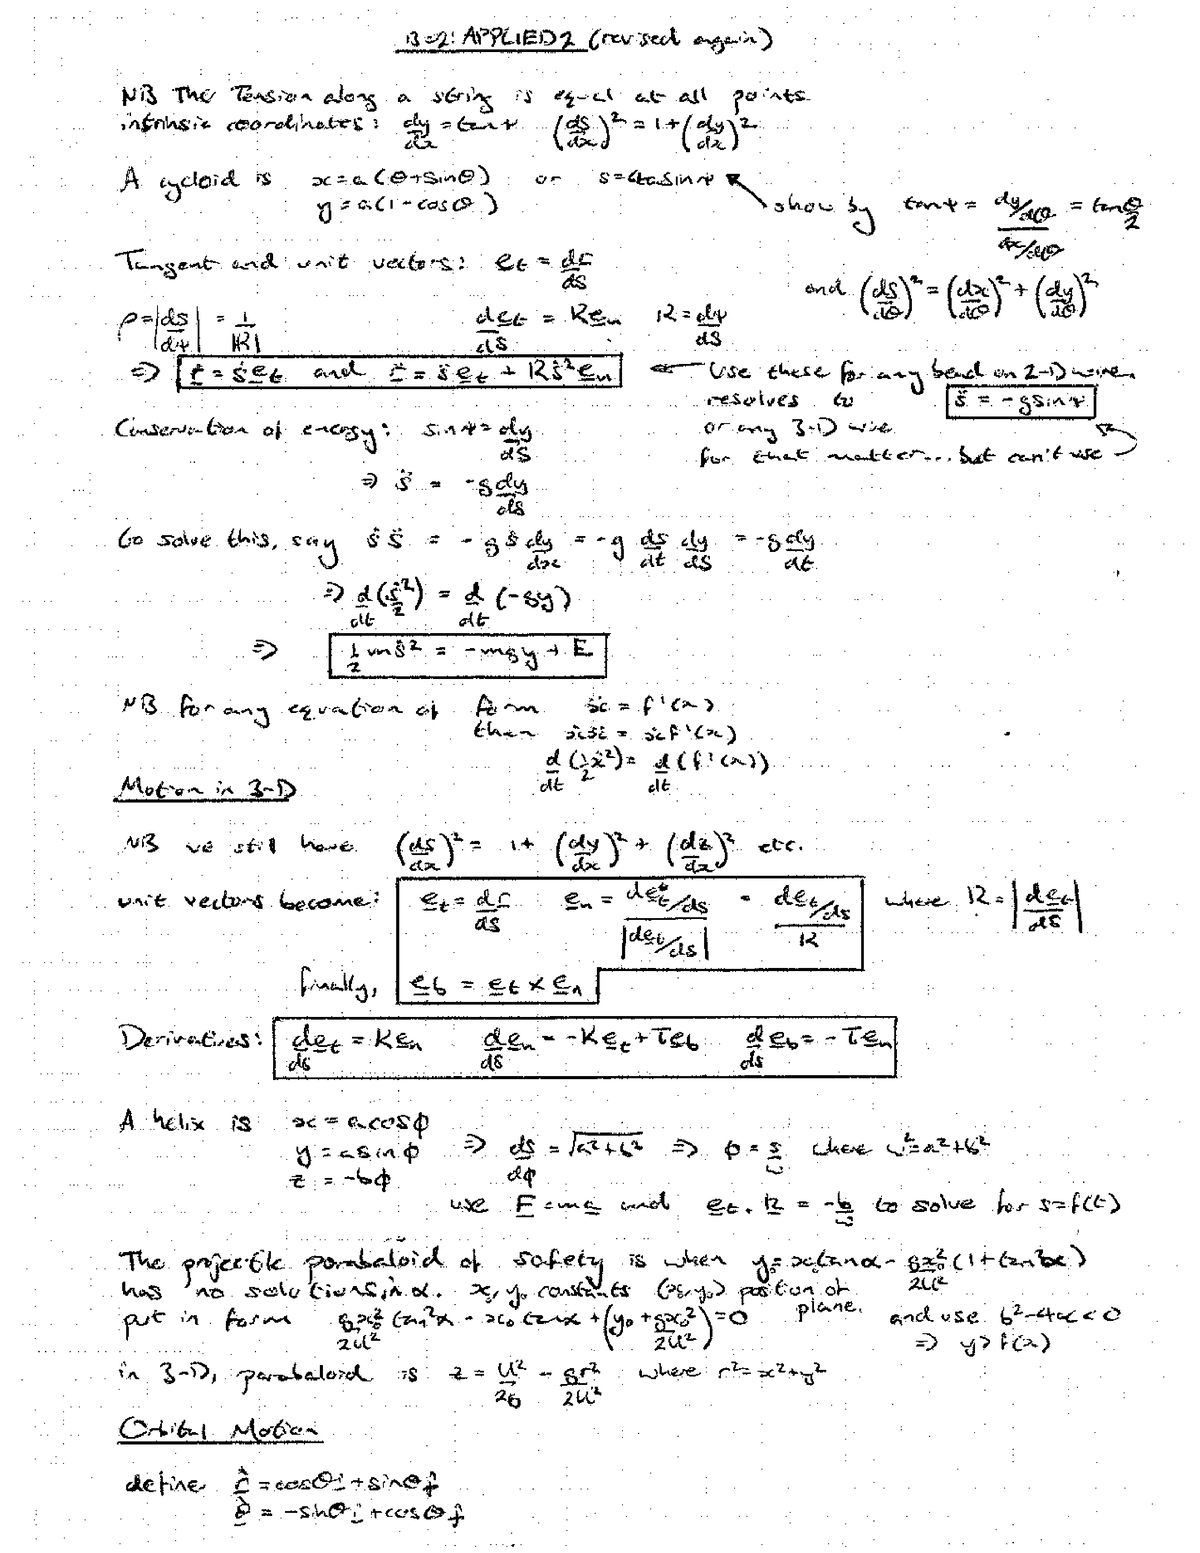 B02: APPLIED 2 (revised again)
NB The Tension along a string is equal at all points
intrinsic coordinates: dy/dx = tanψ (ds/dx)² = 1 + (dy/dx)²
A cycloid is x = a(θ+sinθ) or s = 4asinψ
y = a(1-cosθ)
show by tanψ = (dy/dθ)/(dx/dθ) = tan θ/2
and (ds/dθ)² = (dx/dθ)² + (dy/dθ)²
Tangent and unit vectors: e_t = dr/ds
ρ = |ds/dψ| = 1/|K| de_t/ds = K e_n K = dψ/ds
⇒ ṙ = ṡe_t and r̈ = s̈e_t + Kṡ²e_n
Use these for any bead on 2-D wire
resolves to s̈ = -gsinψ
or any 3-D wire
for that matter... but can't use
Conservation of energy: sinψ = dy/ds
⇒ s̈ = -g dy/ds
to solve this, say ṡs̈ = -gṡ dy/dx = -g ds/dt dy/ds = -g dy/dt
⇒ d/dt (ṡ²/2) = d/dt (-gy)
⇒ 1/2 mṡ² = -mgy + E
NB for any equation of form ẍ = f'(x)
then ẋẍ = ẋf'(x)
d/dt (1/2 ẋ²) = d/dt (f'(x))
Motion in 3-D
NB we still have (ds/dx)² = 1 + (dy/dx)² + (dz/dx)² etc.
unit vectors become: e_t = dr/ds e_n = (de_t/ds)/|de_t/ds| = (de_t/ds)/K where K = |de_t/ds|
finally, e_b = e_t × e_n
Derivatives: de_t/ds = Ke_n de_n/ds = -Ke_t + Te_b d/ds e_b = -Te_n
A helix is x = acosφ
y = asinφ ⇒ ds/dφ = √(a²+b²) ⇒ φ = s/ω where ω² = a²+b²
z = -bφ
use F = ma and e_t.k = -b/ω to solve for s = f(t)
The projectile parabaloid of safety is when y₀ = x₀tanα - gx₀²/2U² (1+tan²α)
has no solutions in α. x₀, y₀ constants (x₀,y₀) position of plane.
put in form gx₀²/2U² tan²α - x₀tanα + (y₀ + gx₀²/2U²) = 0 and use b²-4ac < 0
⇒ y > f(x)
in 3-D, parabaloid is z = U²/2g - gr²/2U² where r² = x²+y²
Orbital Motion
define r̂ = cosθi + sinθj
θ̂ = -sinθi + cosθj